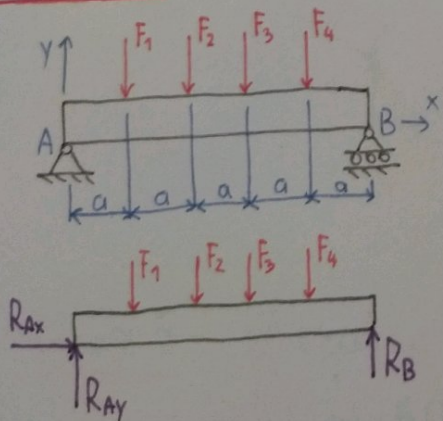 Y F₁ F₂ F₃ F₄
A B x
a a a a a
F₁ F₂ F₃ F₄
R_Ax
R_Ay R_B